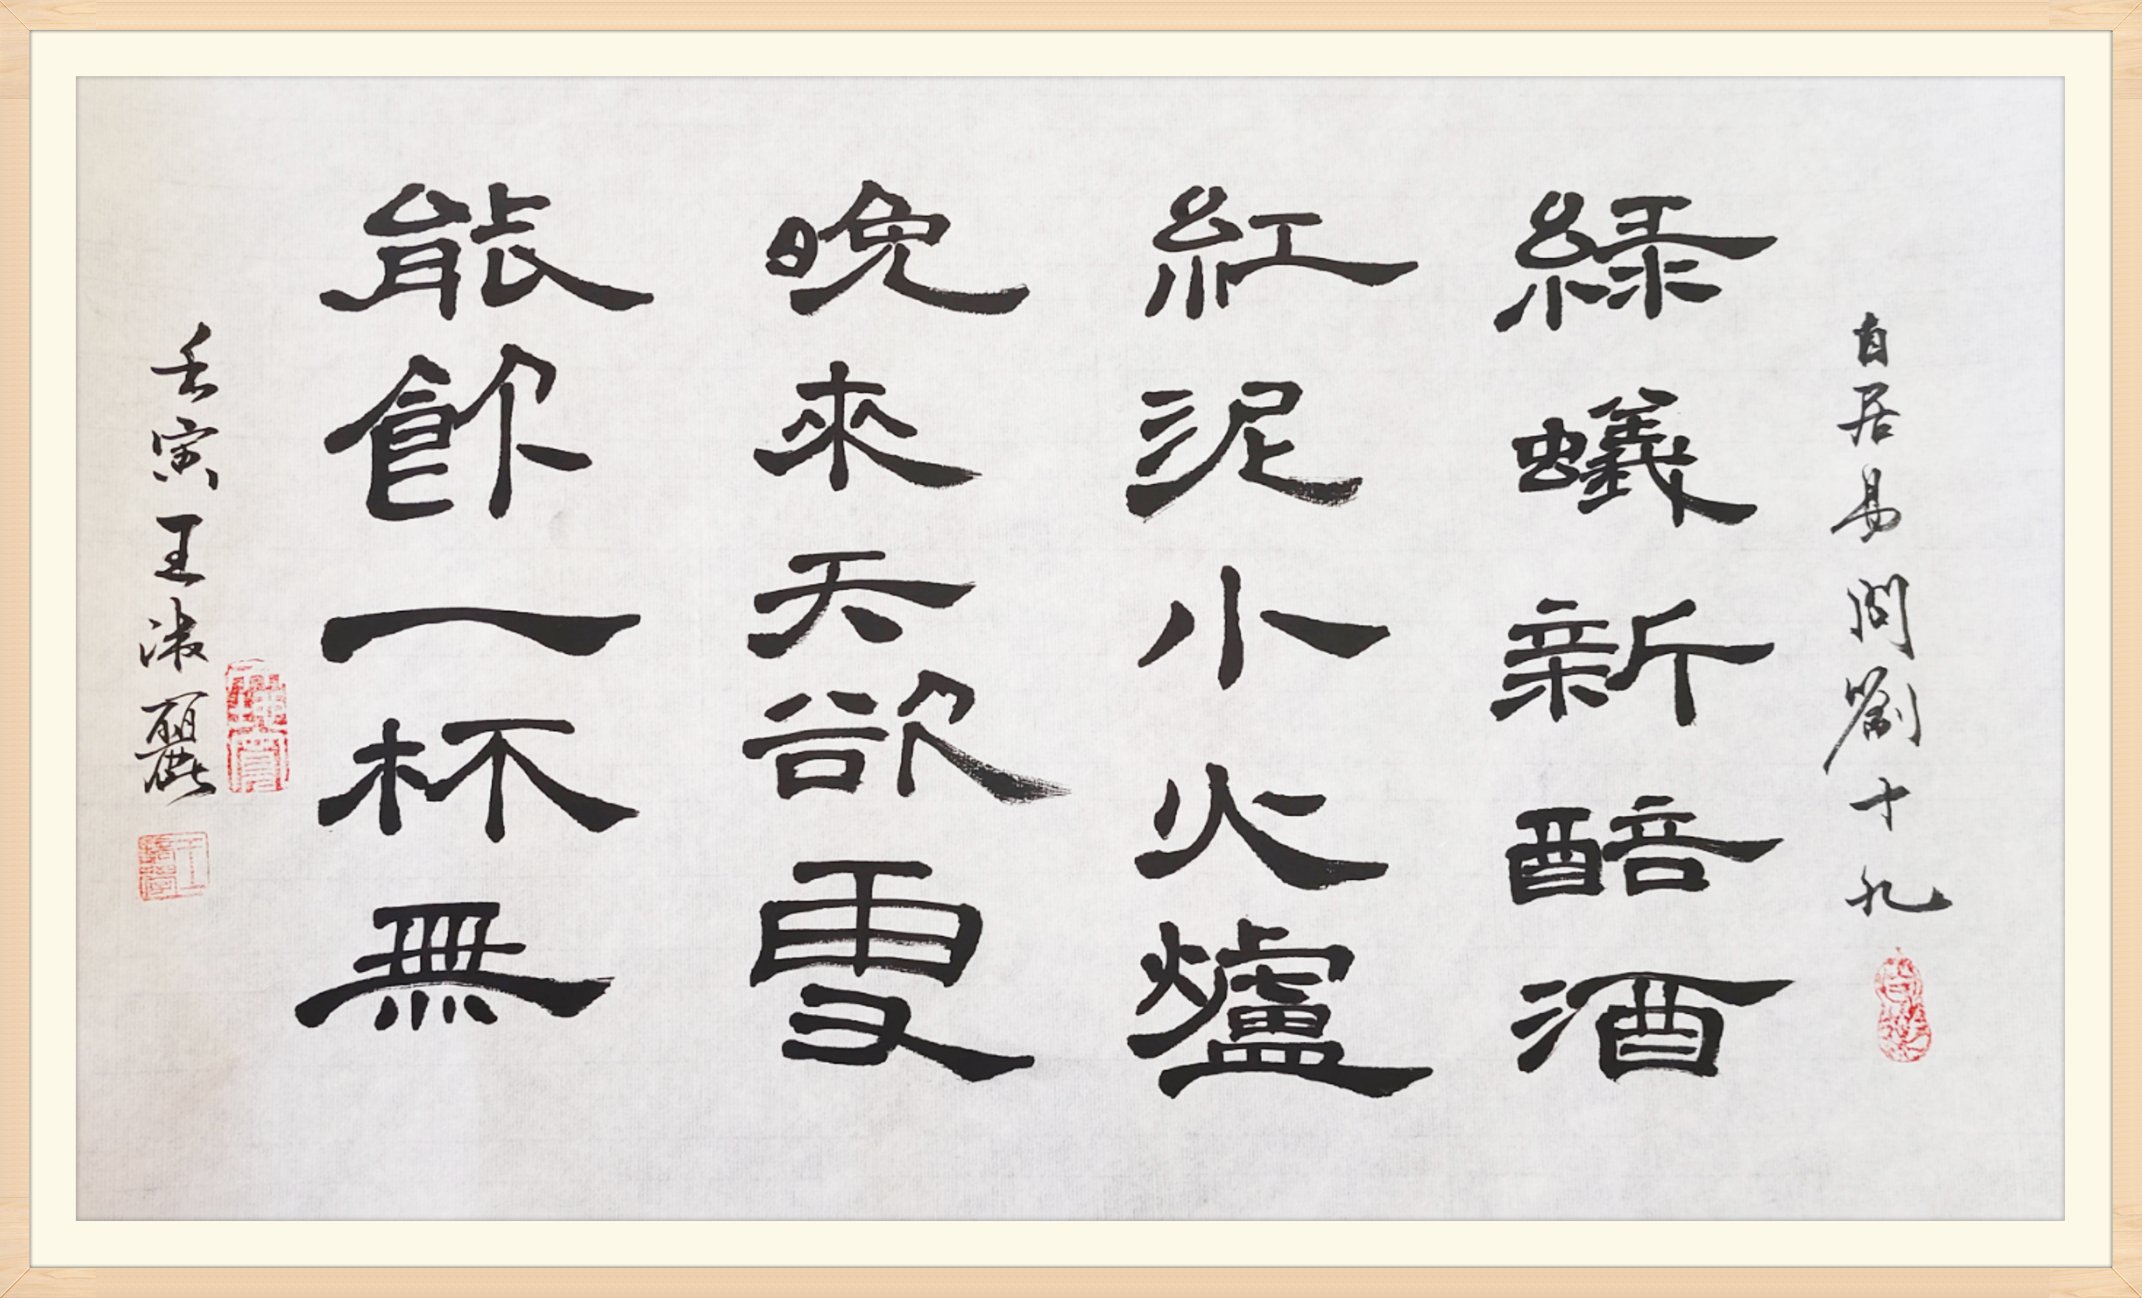 白居易問劉十九
綠蟻新醅酒
紅泥小火爐
晚來天欲雪
能飲一杯無
壬寅王淑麗